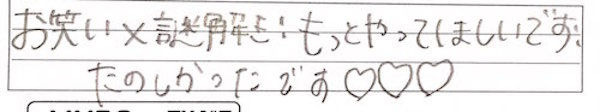 お笑い×謎解き!もっとやってほしいです!
たのしかったです♡♡♡